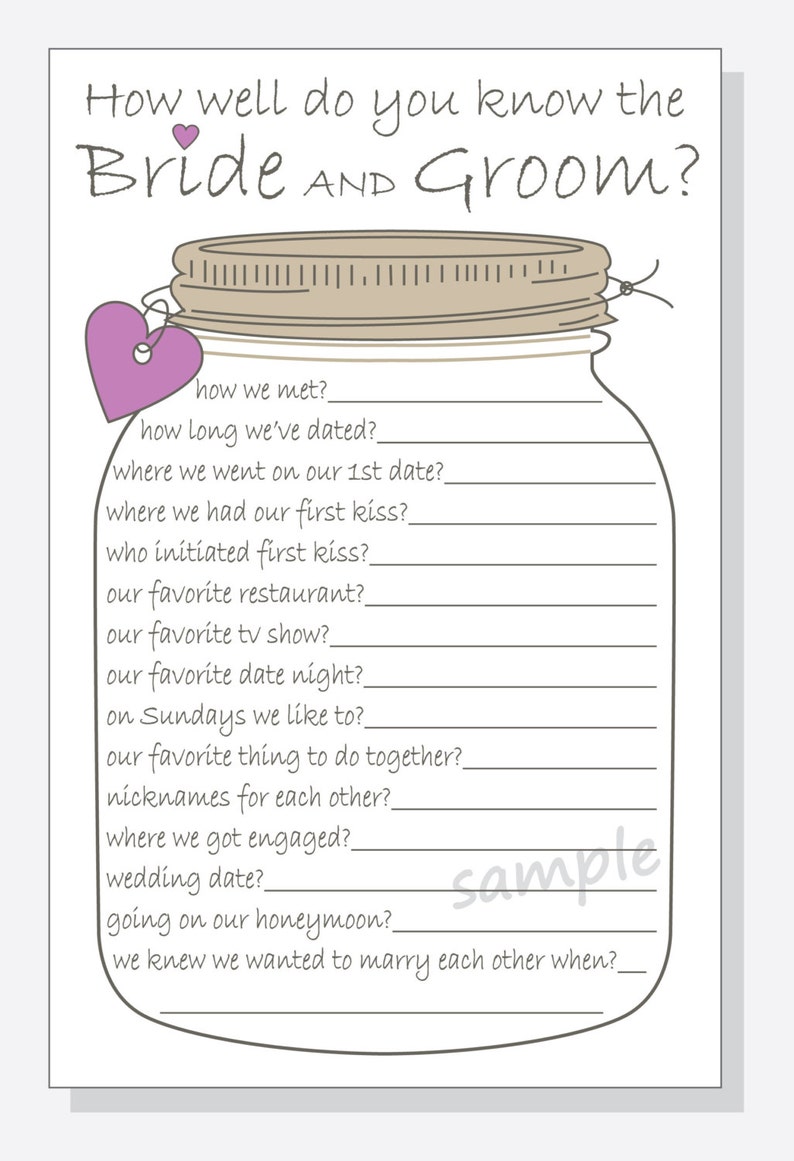 How well do you know the
Bride AND Groom?
how we met?
how long we've dated?
where we went on our 1st date?
where we had our first kiss?
who initiated first kiss?
our favorite restaurant?
our favorite tv show?
our favorite date night?
on Sundays we like to?
our favorite thing to do together?
nicknames for each other?
where we got engaged?
sample
wedding date?
going on our honeymoon?
we knew we wanted to marry each other when?